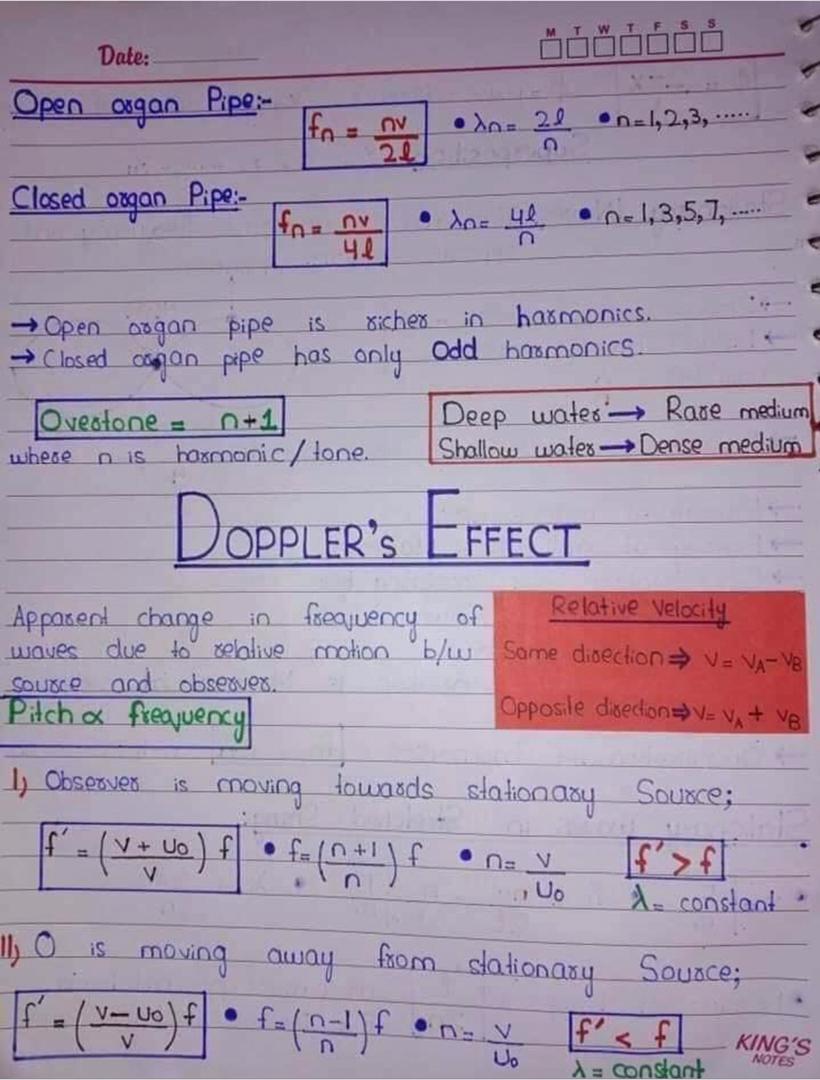 M T W T F S S
Date:
Open organ Pipe:-
fn = nv/2l • λn = 2l/n • n=1,2,3, .....
Closed organ Pipe:-
fn = nv/4l • λn = 4l/n • n=1,3,5,7, .....
→ Open organ pipe is richer in harmonics.
→ Closed organ pipe has only Odd harmonics.
Overtone = n+1
where n is harmonic/tone.
Deep water → Rare medium
Shallow water → Dense medium
DOPPLER's EFFECT
Apparent change in frequency of
waves due to relative motion b/w
source and observer.
Pitch ∝ frequency
Relative Velocity
Same direction ⇒ V = VA - VB
Opposite direction ⇒ V = VA + VB
I) Observer is moving towards stationary Source;
f' = (V + Uo / V) f • f = (n+1 / n) f • n = V/Uo f' > f
λ = constant
II) O is moving away from stationary Source;
f' = (V - Uo / V) f • f = (n-1 / n) f • n = V/Uo f' < f
λ = constant
KING'S
NOTES